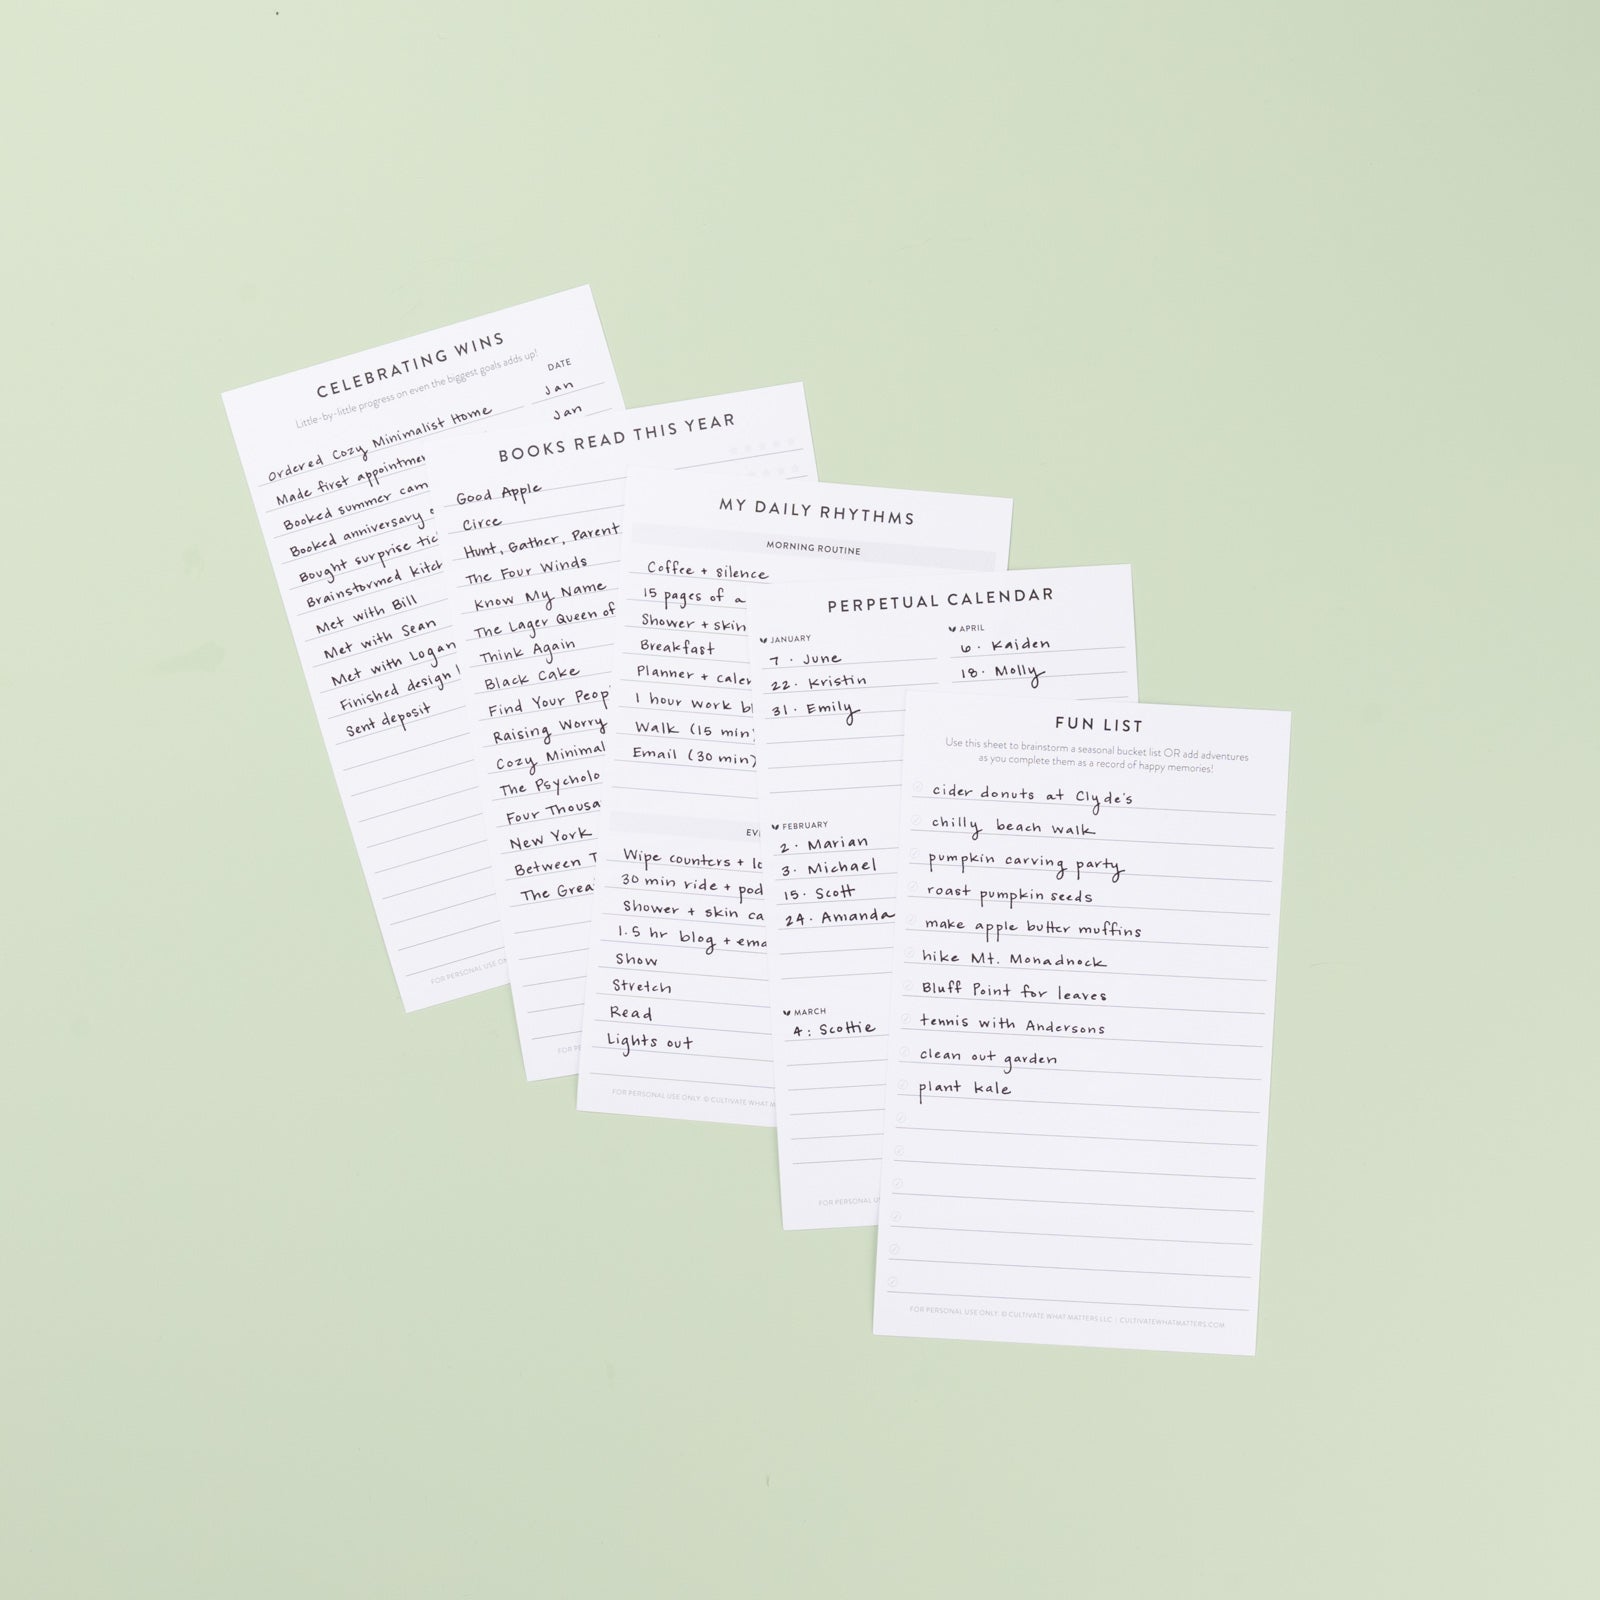 CELEBRATING WINS
Little-by-little progress on even the biggest goals adds up!
DATE
Ordered Cozy Minimalist Home Jan
Made first appointmen Jan
Booked summer cam
Booked anniversary
Bought surprise tic
Brainstormed kitch
Met with Bill
Met with Sean
Met with Logan
Finished design
Sent deposit
FOR PERSONAL USE ON
BOOKS READ THIS YEAR
Good Apple
Circe
Hunt, Gather, Parent
The Four Winds
Know My Name
The Lager Queen of
Think Again
Black Cake
Find Your Peop
Raising Worry
Cozy Minimal
The Psycholo
Four Thousa
New York
Between T
The Grea
FOR P
MY DAILY RHYTHMS
MORNING ROUTINE
Coffee + silence
15 pages of a
Shower + skin
Breakfast
Planner + calen
1 hour work bl
Walk (15 min)
Email (30 min)
EV
Wipe counters + lo
30 min ride + pod
Shower + skin ca
1.5 hr blog + ema
Show
Stretch
Read
Lights out
FOR PERSONAL USE ONLY. © CULTIVATE WHAT M
PERPETUAL CALENDAR
JANUARY
7 · June
22 · Kristin
31 · Emily
FEBRUARY
2 · Marian
3 · Michael
15 · Scott
24 · Amanda
MARCH
4 : Scottie
APRIL
6 · Kaiden
18 · Molly
FOR PERSONAL U
FUN LIST
Use this sheet to brainstorm a seasonal bucket list OR add adventures
as you complete them as a record of happy memories!
cider donuts at Clyde's
chilly beach walk
pumpkin carving party
roast pumpkin seeds
make apple butter muffins
hike Mt. Monadnock
Bluff Point for leaves
tennis with Andersons
clean out garden
plant kale
FOR PERSONAL USE ONLY. © CULTIVATE WHAT MATTERS LLC | CULTIVATEWHATMATTERS.COM